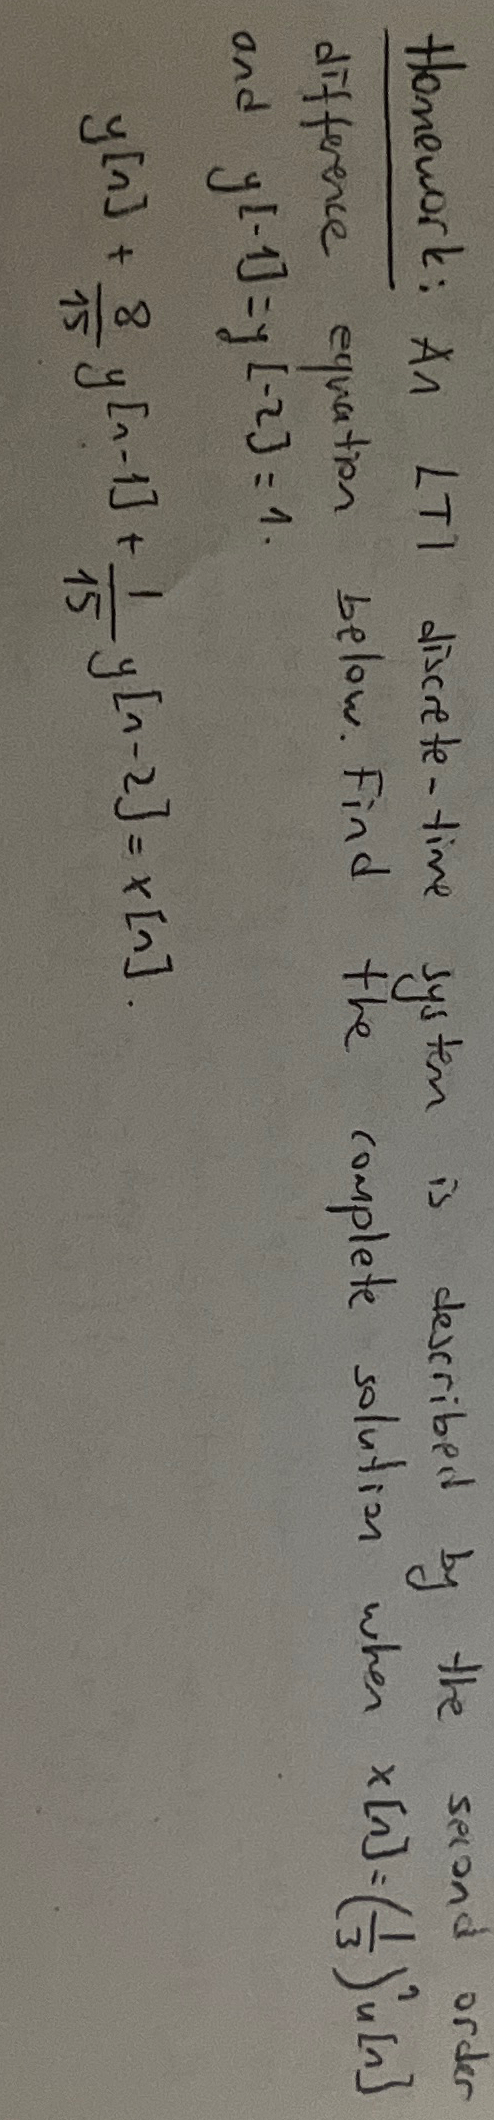 Homework: An LTI discrete-time system is described by the second order
difference equation below. Find the complete solution when x[n]=(1/3)ⁿu[n]
and y[-1]=y[-2]=1.
y[n] + 8/15 y[n-1] + 1/15 y[n-2] = x[n].